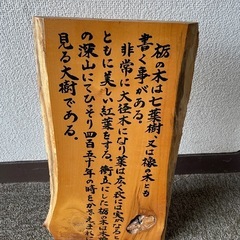 栃の木は七葉樹、又は橡の木とも
書く事がある。
非常に大径木になり葉は広く秋には実がなると
ともに美しい紅葉をする。衝立にした栃の木は木曽
の深山にてひっそり四百五十年の時をかぞえまれに
見る大樹である。